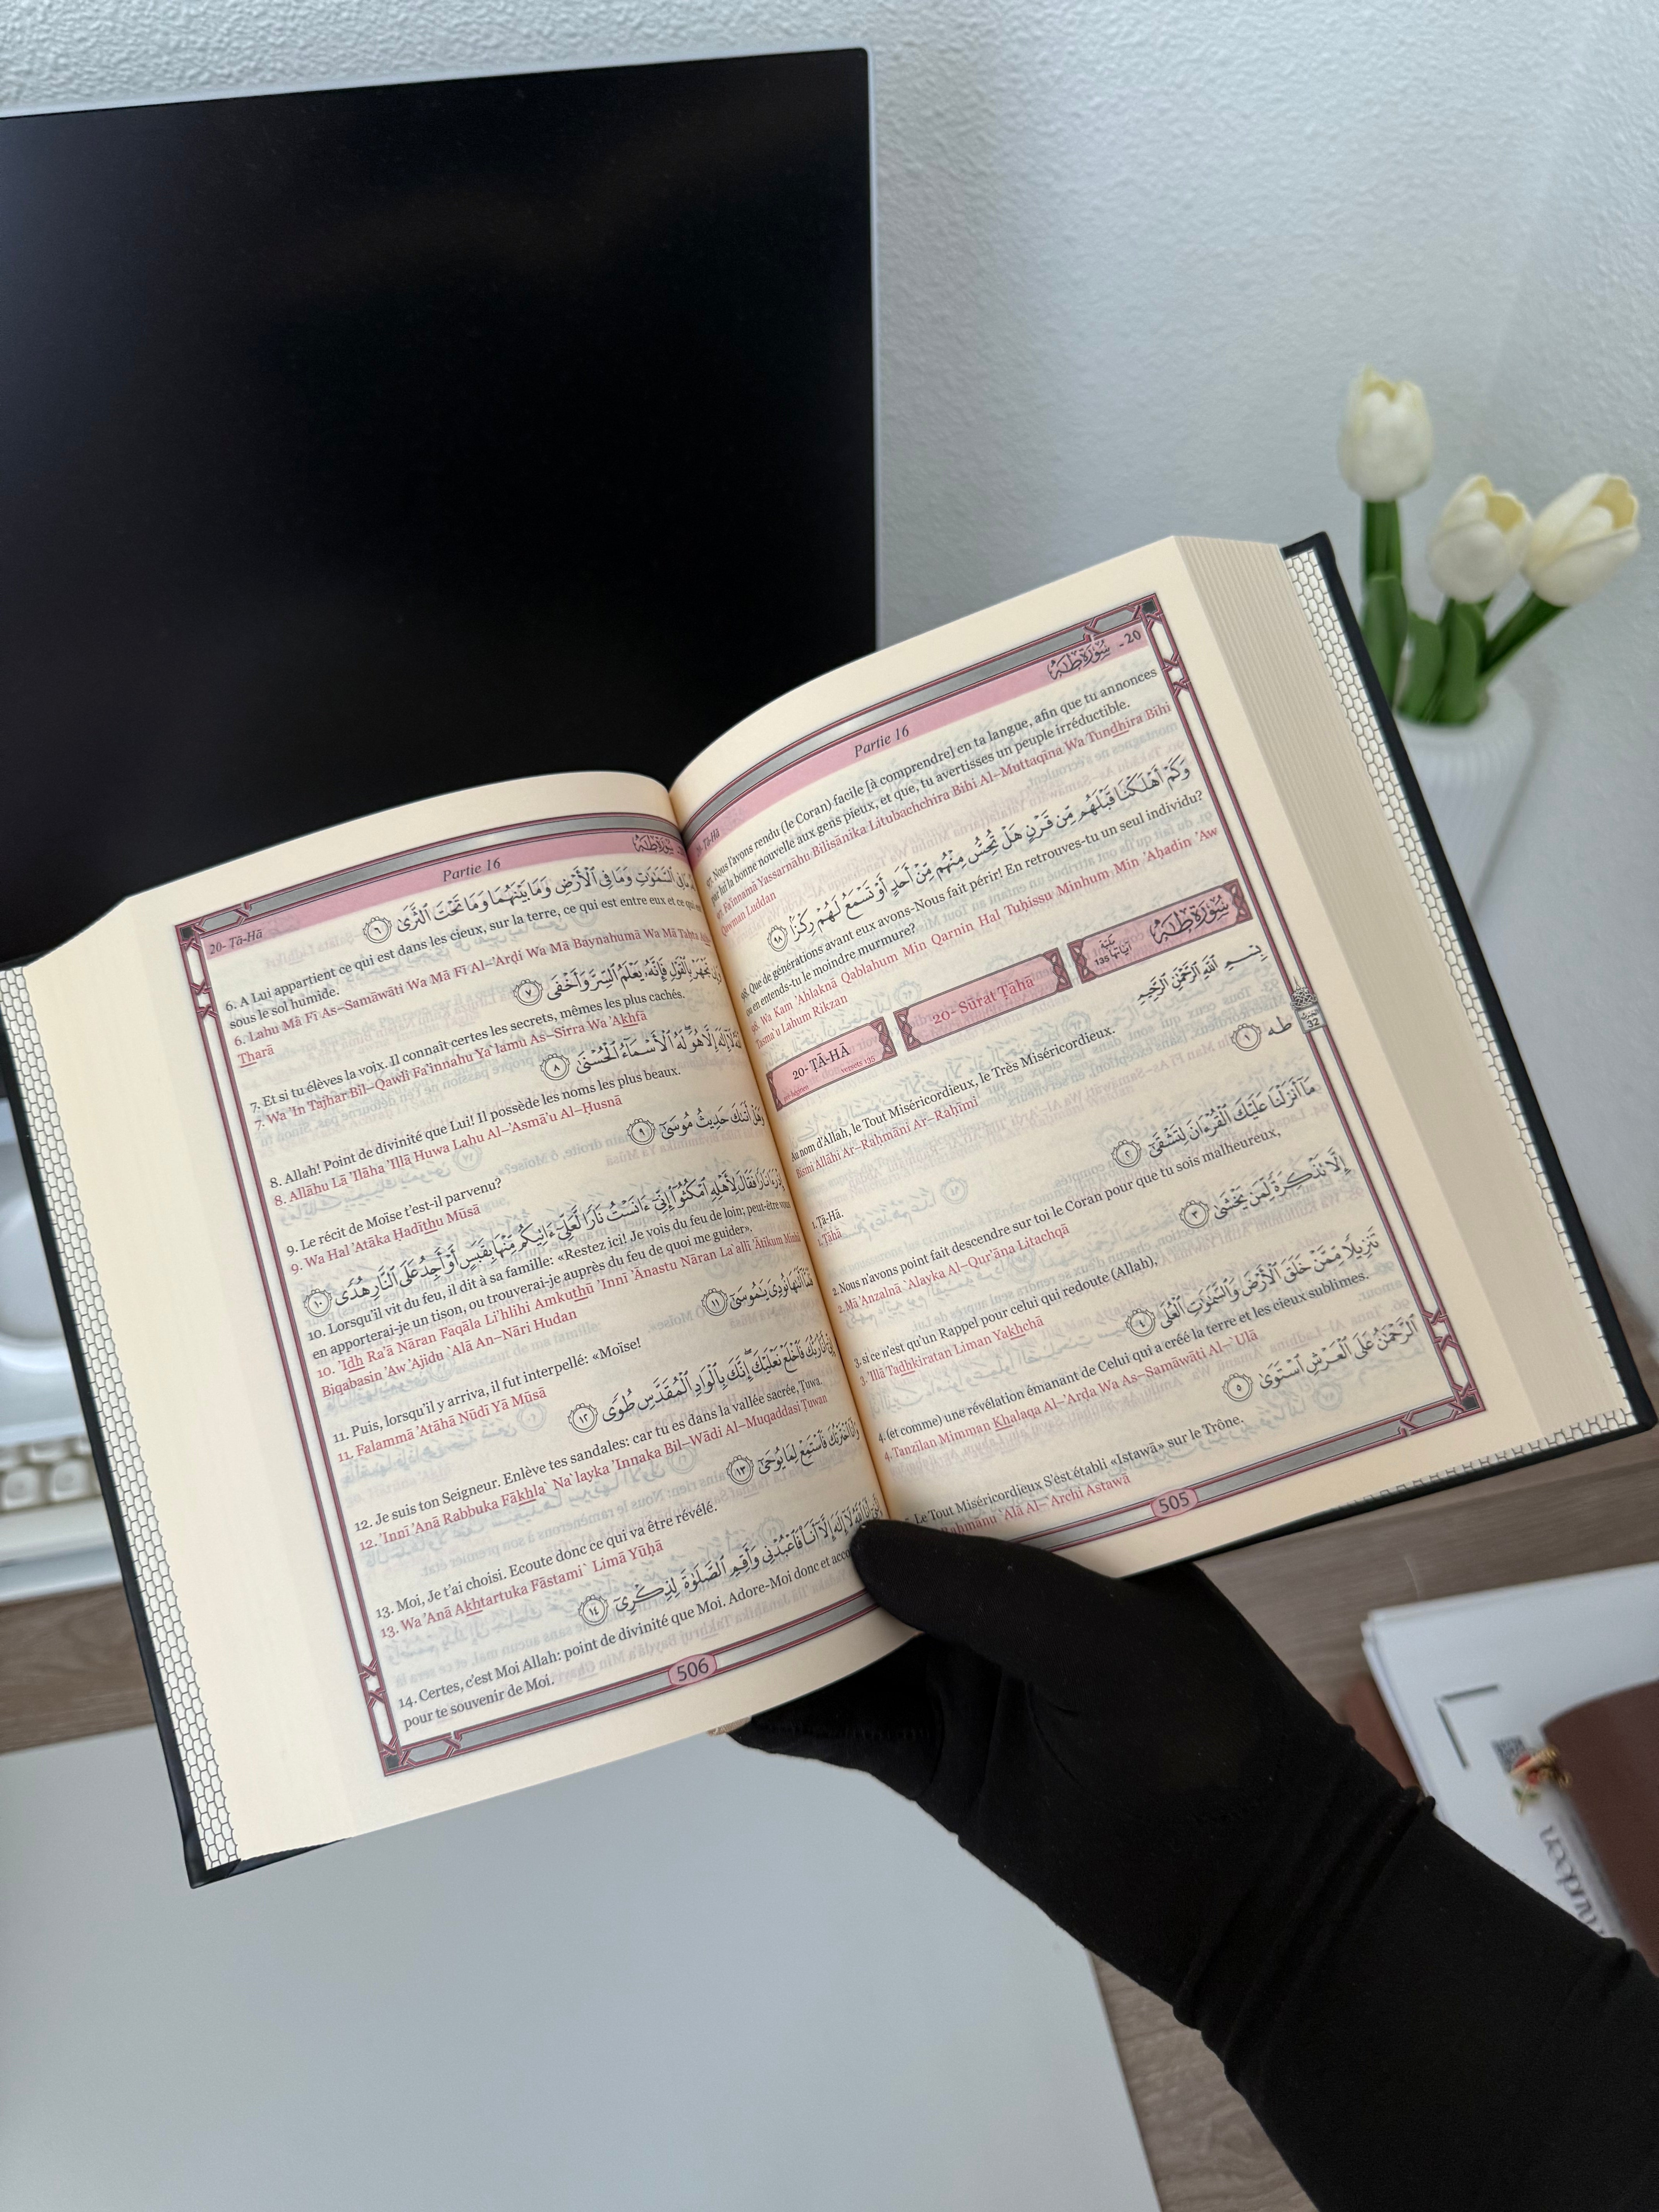 سُورَةُ طه - 20
Partie 16
20- Ṭā-Hā
97. Nous l'avons rendu (le Coran) facile [à comprendre] en ta langue, afin que tu annonces
par lui la bonne nouvelle aux gens pieux, et que, tu avertisses un peuple irréductible.
97. Fa'innamā Yassarnāhu Bilisānika Litubachchira Bihi Al–Muttaqīna Wa Tundhira Bihi
Qawman Luddan
وَكَمْ أَهْلَكْنَا قَبْلَهُم مِّن قَرْنٍ هَلْ تُحِسُّ مِنْهُم مِّنْ أَحَدٍ أَوْ تَسْمَعُ لَهُمْ رِكْزًا ٩٨
98. Que de générations avant eux avons-Nous fait périr! En retrouves-tu un seul individu?
ou en entends-tu le moindre murmure?
98. Wa Kam 'Ahlaknā Qablahum Min Qarnin Hal Tuḥissu Minhum Min 'Aḥadin 'Aw
Tasma`u Lahum Rikzan
20- ṬĀ-HĀ
versets 135
20- Sūrat Ṭāhā
آيَاتُهَا 135
سُورَةُ طه
بِسْمِ ٱللَّهِ ٱلرَّحْمَٰنِ ٱلرَّحِيمِ
Au nom d'Allah, le Tout Miséricordieux, le Très Miséricordieux.
Bismi Allāhi Ar–Raḥmāni Ar–Raḥīmi
32
طه ١
1. Ṭā-Hā.
1. Ṭāhā
مَا أَنزَلْنَا عَلَيْكَ ٱلْقُرْءَانَ لِتَشْقَىٰ ٢
2. Nous n'avons point fait descendre sur toi le Coran pour que tu sois malheureux,
2. Mā 'Anzalnā `Alayka Al–Qur'āna Litachqā
إِلَّا تَذْكِرَةً لِّمَن يَخْشَىٰ ٣
3. si ce n'est qu'un Rappel pour celui qui redoute (Allah),
3. 'Illā Tadhkiratan Liman Yakhchā
تَنزِيلًا مِّمَّنْ خَلَقَ ٱلْأَرْضَ وَٱلسَّمَٰوَٰتِ ٱلْعُلَى ٤
4. (et comme) une révélation émanant de Celui qui a créé la terre et les cieux sublimes.
4. Tanzīlan Mimman Khalaqa Al–'Arḍa Wa As–Samāwāti Al–`Ulā
ٱلرَّحْمَٰنُ عَلَى ٱلْعَرْشِ ٱسْتَوَىٰ ٥
Le Tout Miséricordieux S'est établi «Istawā» sur le Trône.
Raḥmānu `Alá Al–`Archi Astawā
505
سُورَةُ طه
Partie 16
20- Ṭā-Hā
مَا فِى ٱلسَّمَٰوَٰتِ وَمَا فِى ٱلْأَرْضِ وَمَا بَيْنَهُمَا وَمَا تَحْتَ ٱلثَّرَىٰ ٦
6. A Lui appartient ce qui est dans les cieux, sur la terre, ce qui est entre eux et ce qui
sous le sol humide.
6. Lahu Mā Fī As–Samāwāti Wa Mā Fī Al–'Arḍi Wa Mā Baynahumā Wa Mā Taḥta
Tharā
تَجْهَرْ بِٱلْقَوْلِ فَإِنَّهُۥ يَعْلَمُ ٱلسِّرَّ وَأَخْفَى ٧
7. Et si tu élèves la voix. Il connaît certes les secrets, mêmes les plus cachés.
7. Wa 'In Tajhar Bil–Qawli Fa'innahu Ya`lamu As–Sirra Wa 'Akhfā
لَا إِلَٰهَ إِلَّا هُوَ لَهُ ٱلْأَسْمَآءُ ٱلْحُسْنَىٰ ٨
8. Allah! Point de divinité que Lui! Il possède les noms les plus beaux.
8. Allāhu Lā 'Ilāha 'Illā Huwa Lahu Al–'Asmā'u Al–Ḥusnā
وَهَلْ أَتَىٰكَ حَدِيثُ مُوسَىٰ ٩
9. Le récit de Moïse t'est-il parvenu?
9. Wa Hal 'Atāka Ḥadīthu Mūsā
إِذْ رَءَا نَارًا فَقَالَ لِأَهْلِهِ ٱمْكُثُوٓا۟ إِنِّىٓ ءَانَسْتُ نَارًا لَّعَلِّىٓ ءَاتِيكُم مِّنْهَا بِقَبَسٍ أَوْ أَجِدُ عَلَى ٱلنَّارِ هُدًى ١٠
10. Lorsqu'il vit du feu, il dit à sa famille: «Restez ici! Je vois du feu de loin; peut-être vous
en apporterai-je un tison, ou trouverai-je auprès du feu de quoi me guider».
10. 'Idh Ra'ā Nāran Faqāla Li'hlihi Amkuthū 'Innī 'Ānastu Nāran La`allī 'Ātīkum Minhā
Biqabasin 'Aw 'Ajidu `Alá An–Nāri Hudan
فَلَمَّآ أَتَىٰهَا نُودِىَ يَٰمُوسَىٰٓ ١١
11. Puis, lorsqu'il y arriva, il fut interpellé: «Moïse!
11. Falammā 'Atāhā Nūdī Yā Mūsā
إِنِّىٓ أَنَا۠ رَبُّكَ فَٱخْلَعْ نَعْلَيْكَ إِنَّكَ بِٱلْوَادِ ٱلْمُقَدَّسِ طُوًى ١٢
12. Je suis ton Seigneur. Enlève tes sandales: car tu es dans la vallée sacrée, Ṭuwa.
12. 'Innī 'Anā Rabbuka Fākhla` Na`layka 'Innaka Bil–Wādi Al–Muqaddasi Ṭuwan
وَأَنَا ٱخْتَرْتُكَ فَٱسْتَمِعْ لِمَا يُوحَىٰٓ ١٣
13. Moi, Je t'ai choisi. Ecoute donc ce qui va être révélé.
13. Wa 'Anā Akhtartuka Fāstami` Limā Yūḥā
ٱللَّهُ لَآ إِلَٰهَ إِلَّآ أَنَا۠ فَٱعْبُدْنِى وَأَقِمِ ٱلصَّلَوٰةَ لِذِكْرِىٓ ١٤
14. Certes, c'est Moi Allah: point de divinité que Moi. Adore-Moi donc et
pour te souvenir de Moi.
506